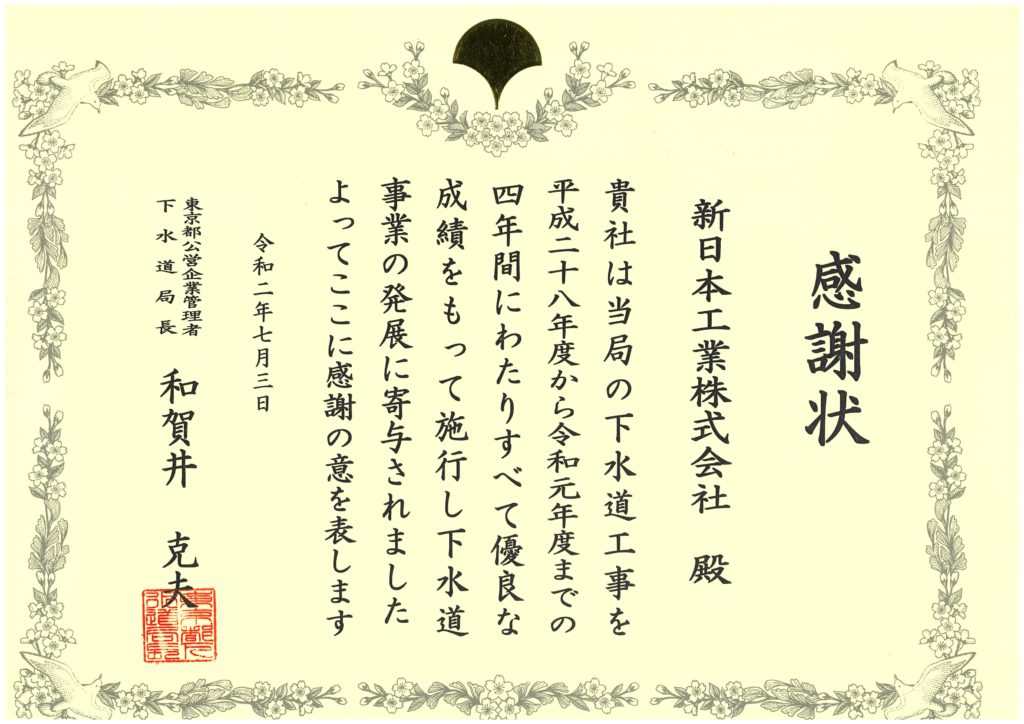 感謝状
新日本工業株式会社 殿
貴社は当局の下水道工事を
平成二十八年度から令和元年度までの
四年間にわたりすべて優良な
成績をもって施行し下水道
事業の発展に寄与されました
よってここに感謝の意を表します
令和二年七月三日
東京都公営企業管理者
下水道局長
和賀井 克夫